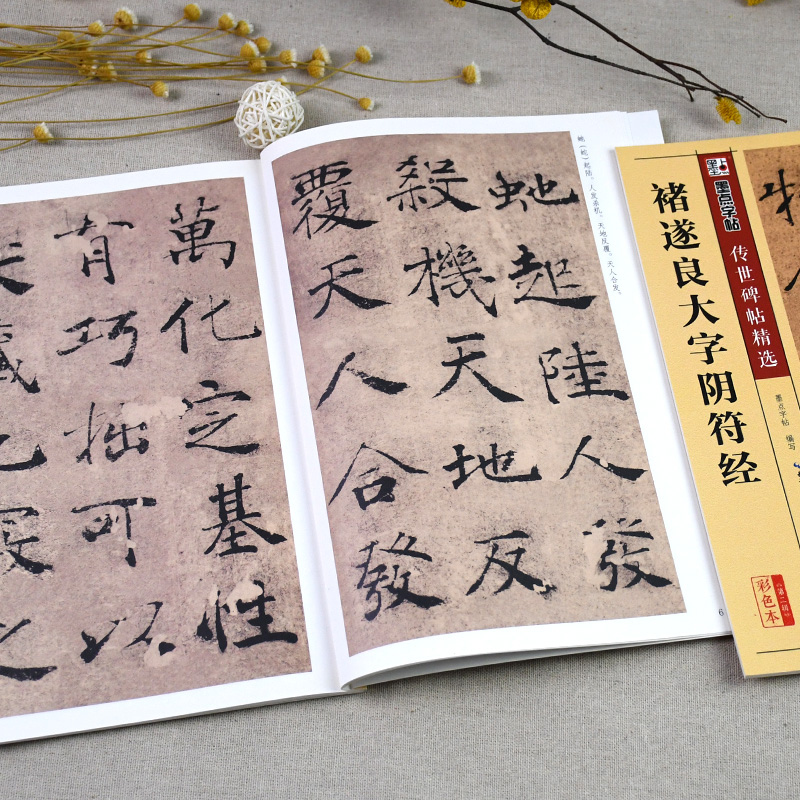 虵（蛇）起陆。人发杀机，天地反覆。天人合发，
虵起陸人發
殺機天地反
覆天人合發
6
萬化定基性
有巧拙可以
之
墨点
墨点字帖
传世碑帖精选
褚遂良大字阴符经
墨点字帖 编写
《第二辑》
彩色本